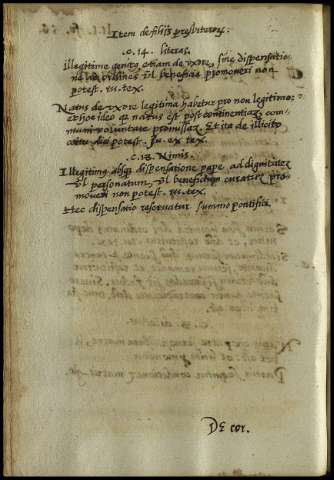 Item de filiis presbiterorum.
c. 14. literas.
Illegitime genitus etiam de uxore, sine dispensatio-
ne ad ordines vel beneficia promoveri non
potest. in. tex.
Natus de uxore legitima habetur pro non legitimo:
et hoc ideo quia natus est post continentiam com-
muni voluntate promissam. Et ita de illicito
coitu dici potest. In. ex tex.
c. 18. Nimis.
Illegitimus absque dispensatione pape ad dignitatem
vel personatum, vel beneficium curatum pro-
moveri non potest. in. tex.
Hec dispensatio reservatur summo pontifici.
De cor.